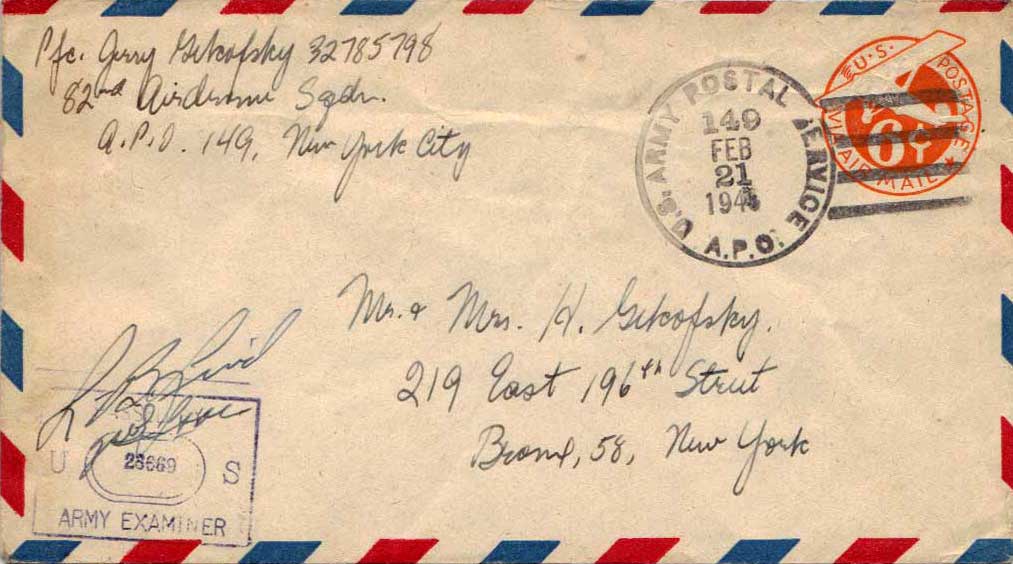 Pfc. Jerry Gitkofsky 32785798
82nd Airdrome Sqdn.
A.P.O. 149, New York City
U.S. ARMY POSTAL SERVICE
149
FEB
21
194
A.P.O.
U.S. POSTAGE
6¢
VIA AIR MAIL
Mr. & Mrs. H. Gitkofsky.
219 East 196th Street
Bronx, 58, New York
U 23669 S
ARMY EXAMINER